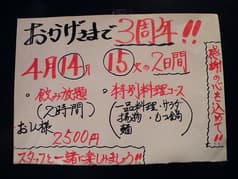 おかげさまで3周年!!
4月14月 15火の2日間
・飲み放題
(2時間)
お1人様
2500円
・特別料理コース
(一品料理・サラダ
揚物・もつ鍋
麺)
スタッフと一緒に楽しみましょう!!
感謝の心を込めて!!